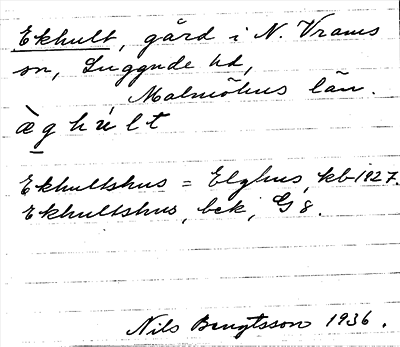 Ekhult, gård i N. Vrams
sn, Luggude hd,
Malmöhus län.
æ̀g húlt
Ekhultshus = Elghus, kb 1827.
Ekhultshus, bek, G 8.
Nils Bengtsson 1936.